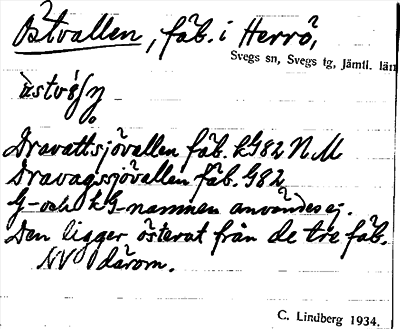 Östvallen, fäb. i Herrö,
Svegs sn, Svegs tg, Jämtl. län
Dravattsjövallen fäb. kG82 N.M
Dravagssjövallen fäb. G82
G- och kG-namnen användes ej.
Den ligger österut från de tre fäb.
NV därom.
C. Lindberg 1934.